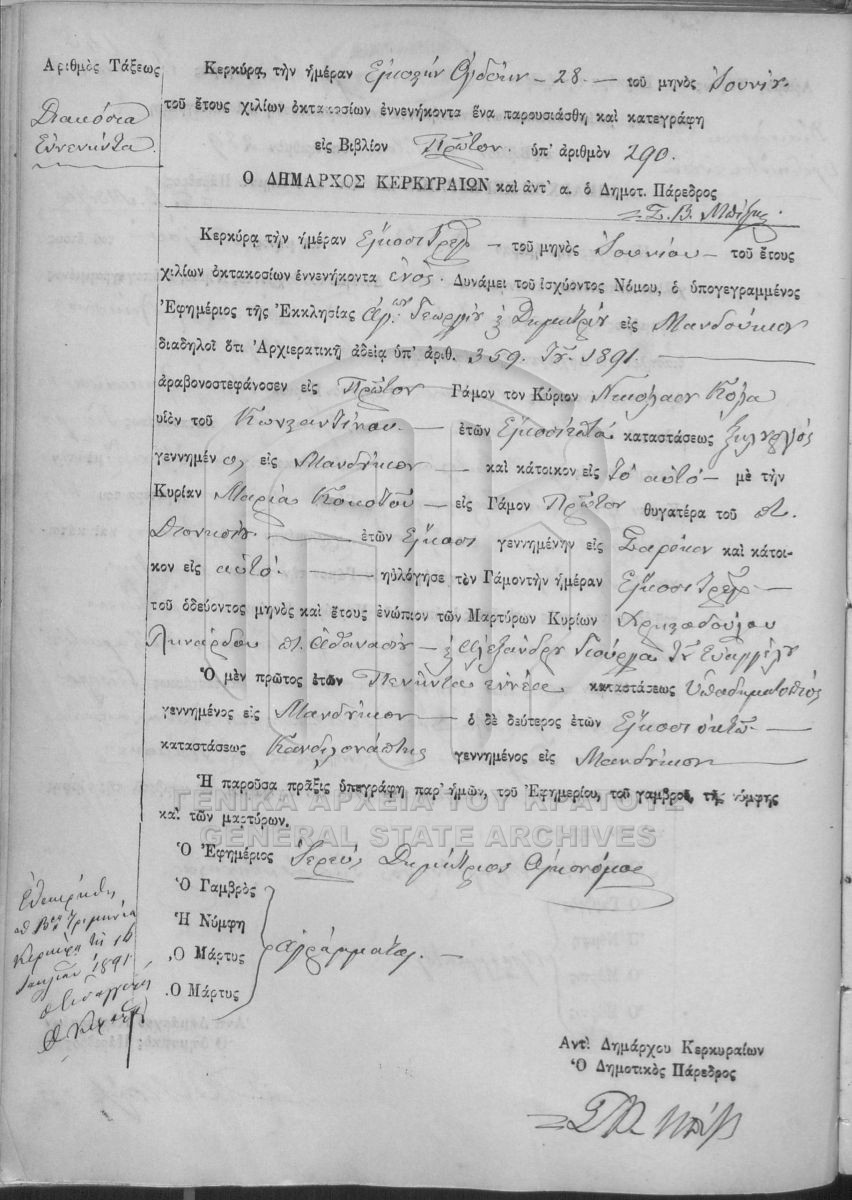 Ἀριθμὸς Τάξεως
Διακόσια
Ἐννενῆντα
Κερκύρᾳ, τὴν ἡμέραν Εἰκοστὴν Ὀγδόην - 28 - τοῦ μηνὸς Ἰουνίου
τοῦ ἔτους χιλίων ὀκτακοσίων ἐννενήκοντα ἕνα παρουσιάσθη καὶ κατεγράφη
εἰς Βιβλίον Πρῶτον ὑπ' ἀριθμὸν 290.
Ο ΔΗΜΑΡΧΟΣ ΚΕΡΚΥΡΑΙΩΝ καὶ ἀντ' α. ὁ Δημοτ. Πάρεδρος
Σ. Β.
Κερκύρᾳ τὴν ἡμέραν Εἴκοσι Τρεῖς - τοῦ μηνὸς Ἰουνίου - τοῦ ἔτους
χιλίων ὀκτακοσίων ἐννενήκοντα ἑνός. Δυνάμει τοῦ ἰσχύοντος Νόμου, ὁ ὑπογεγραμμένος
Ἐφημέριος τῆς Ἐκκλησίας Ἁγ.ων Γεωργίου & Δημητρίου εἰς Μανδούκιον
διαδηλοῖ ὅτι Ἀρχιερατικῇ ἀδείᾳ ὑπ' ἀριθ. 359. 1891.
ἀραβονοστεφάνοσεν εἰς Πρῶτον Γάμον τον Κύριον Νικόλαον Κόλα
υἱὸν τοῦ Κωνσταντίνου - ἐτῶν Εἰκοσιεπτά καταστάσεως
γεννημένον εἰς Μανδούκιον - καὶ κάτοικον εἰς τὸ αὐτό - μὲ τὴν
Κυρίαν Μαρία Κοκοτοῦ - εἰς Γάμον Πρῶτον θυγατέρα τοῦ π.
Διονυσίου - ἐτῶν Εἴκοσι γεννημένην εἰς Σαρόκον καὶ κάτοι-
κον εἰς αὐτό. - ηὐλόγησε τὸν Γάμον τὴν ἡμέραν Εἴκοσι τρεῖς -
τοῦ ὁδεύοντος μηνὸς καὶ ἔτους ἐνώπιον τῶν Μαρτύρων Κυρίων Χριστοδούλου
Λινάρδου π. Ἀθανασίου - & Ἀλεξάνδρου Γιούργα Εὐαγγέλου
Ὁ μὲν πρῶτος ἐτῶν Πενῆντα ἐννέα καταστάσεως Ὑποδηματοποιός
γεννημένος εἰς Μανδούκιον - ὁ δὲ δεύτερος ἐτῶν Εἴκοσι ὀκτώ -
καταστάσεως Κανδιλονάπτης γεννημένος εἰς Μανδούκιον
Ἡ παροῦσα πρᾶξις ὑπεγράφη παρ' ἡμῶν, τοῦ Ἐφημερίου, τοῦ γαμβροῦ, τῆς νύμφης
καὶ τῶν μαρτύρων.
ΓΕΝΙΚΑ ΑΡΧΕΙΑ ΤΟΥ ΚΡΑΤΟΥΣ
GENERAL STATE ARCHIVES
Ὁ Ἐφημέριος Ἱερεὺς Δημήτριος Οἰκονόμος
Ὁ Γαμβρὸς
Ἡ Νύμφη
Ὁ Μάρτυς
Ὁ Μάρτυς
Ἀγράμματοι. -
Ἐθεωρήθη
Τριμηνία
Κερκύρᾳ τῇ 16
1891
Ὁ Εἰσαγγελεύς
Ἀντὶ Δημάρχου Κερκυραίων
Ὁ Δημοτικὸς Πάρεδρος